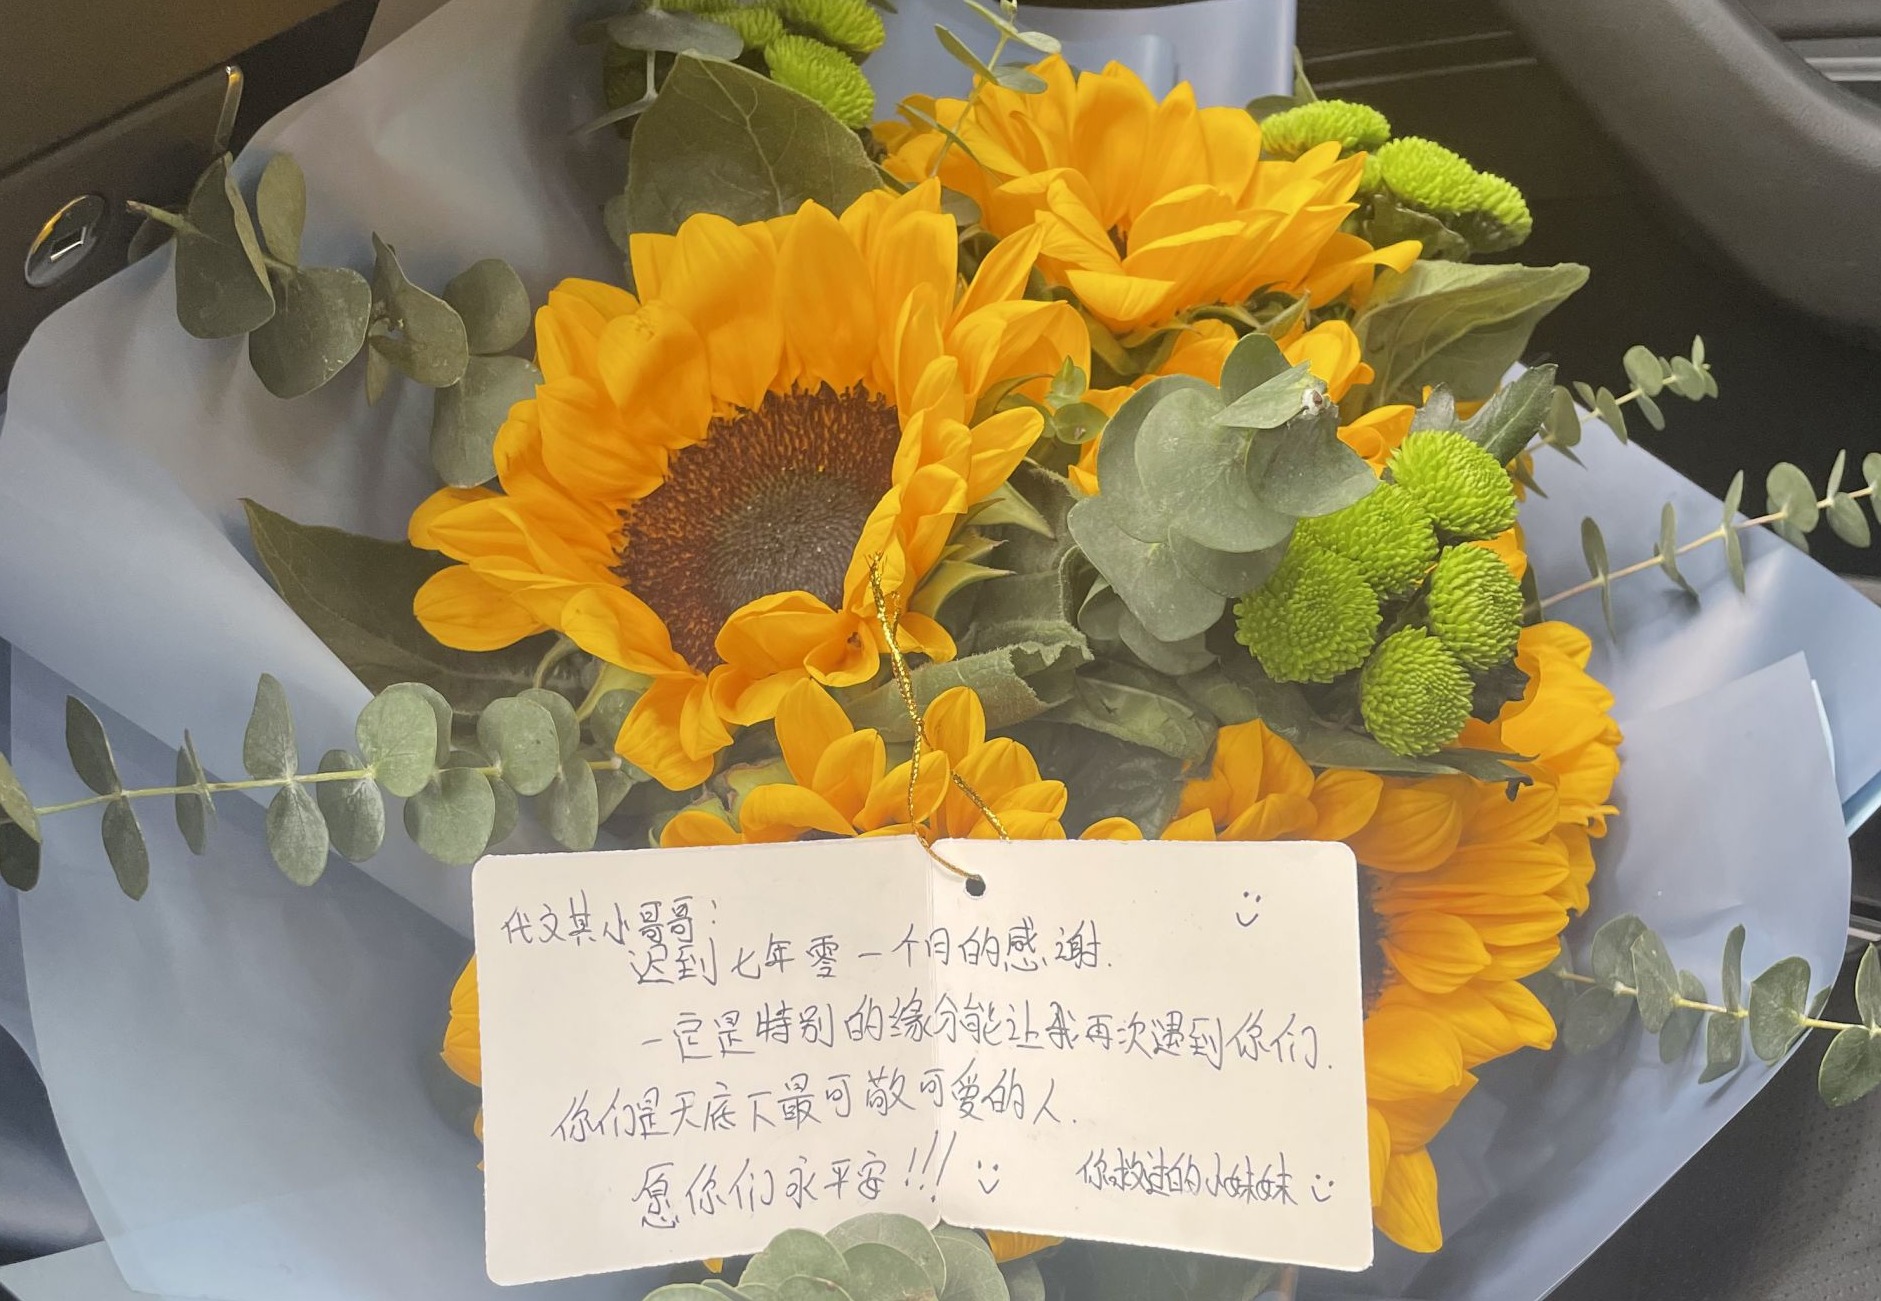 代文其小哥哥：
迟到七年零一个月的感谢.
一定是特别的缘分能让我再次遇到你们.
你们是天底下最可敬可爱的人.
愿你们永平安!!!
你救过的小妹妹